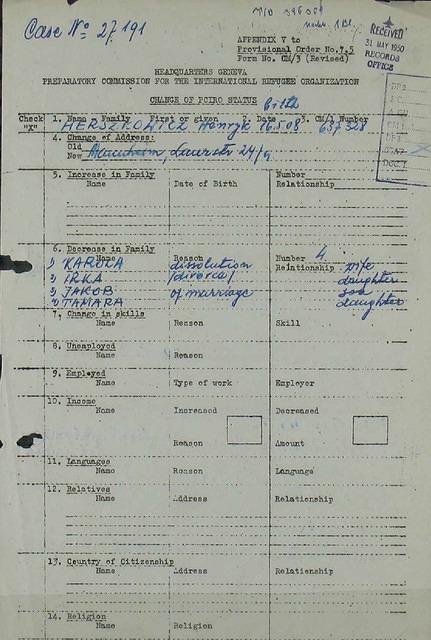 Case No 27,191
T/D 396089
RECEIVED
31 MAY 1950
RECORDS
OFFICE
APPENDIX V to
Provisional Order No.75
Form No. CM/3 (Revised)
HEADQUARTERS GENEVA
PREPARATORY COMMISSION FOR THE INTERNATIONAL REFUGEE ORGANIZATION
CHANGE OF PCIRO STATUS
Birth
Check "X"
1. Name - Family First or given 2. Date 3. CM/1 Number
HERSZKOWICZ Henryk 16.5.08 637328
4. Change of Address:
Old
Now Mannheim, 24/9
5. Increase in Family Number
Name Date of Birth Relationship
6. Decrease in Family Reason Number 4
Name Relationship
1) KAROLA dissolution wife
2) IRKA (divorce) daughter
3) JAKOB of marriage son
4) TAMARA daughter
7. Change in skills
Name Reason Skill
8. Unemployed
Name Reason
9. Employed
Name Type of work Employer
10. Income Increased Decreased
Name
Reason Amount
11. Languages
Name Reason Language
12. Relatives
Name Address Relationship
13. Country of Citizenship
Name Address Relationship
14. Religion
Name Religion